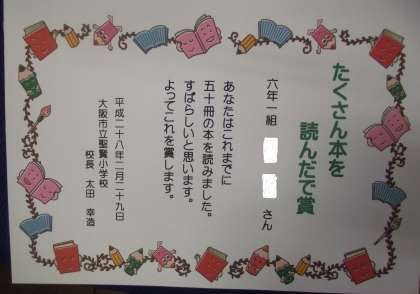 たくさん本を
読んだで賞
六年一組 さん
あなたはこれまでに
五十冊の本を読みました。
すばらしいと思います。
よってこれを賞します。
平成二十八年二月二十九日
大阪市立聖賢小学校
校長 太田 幸造